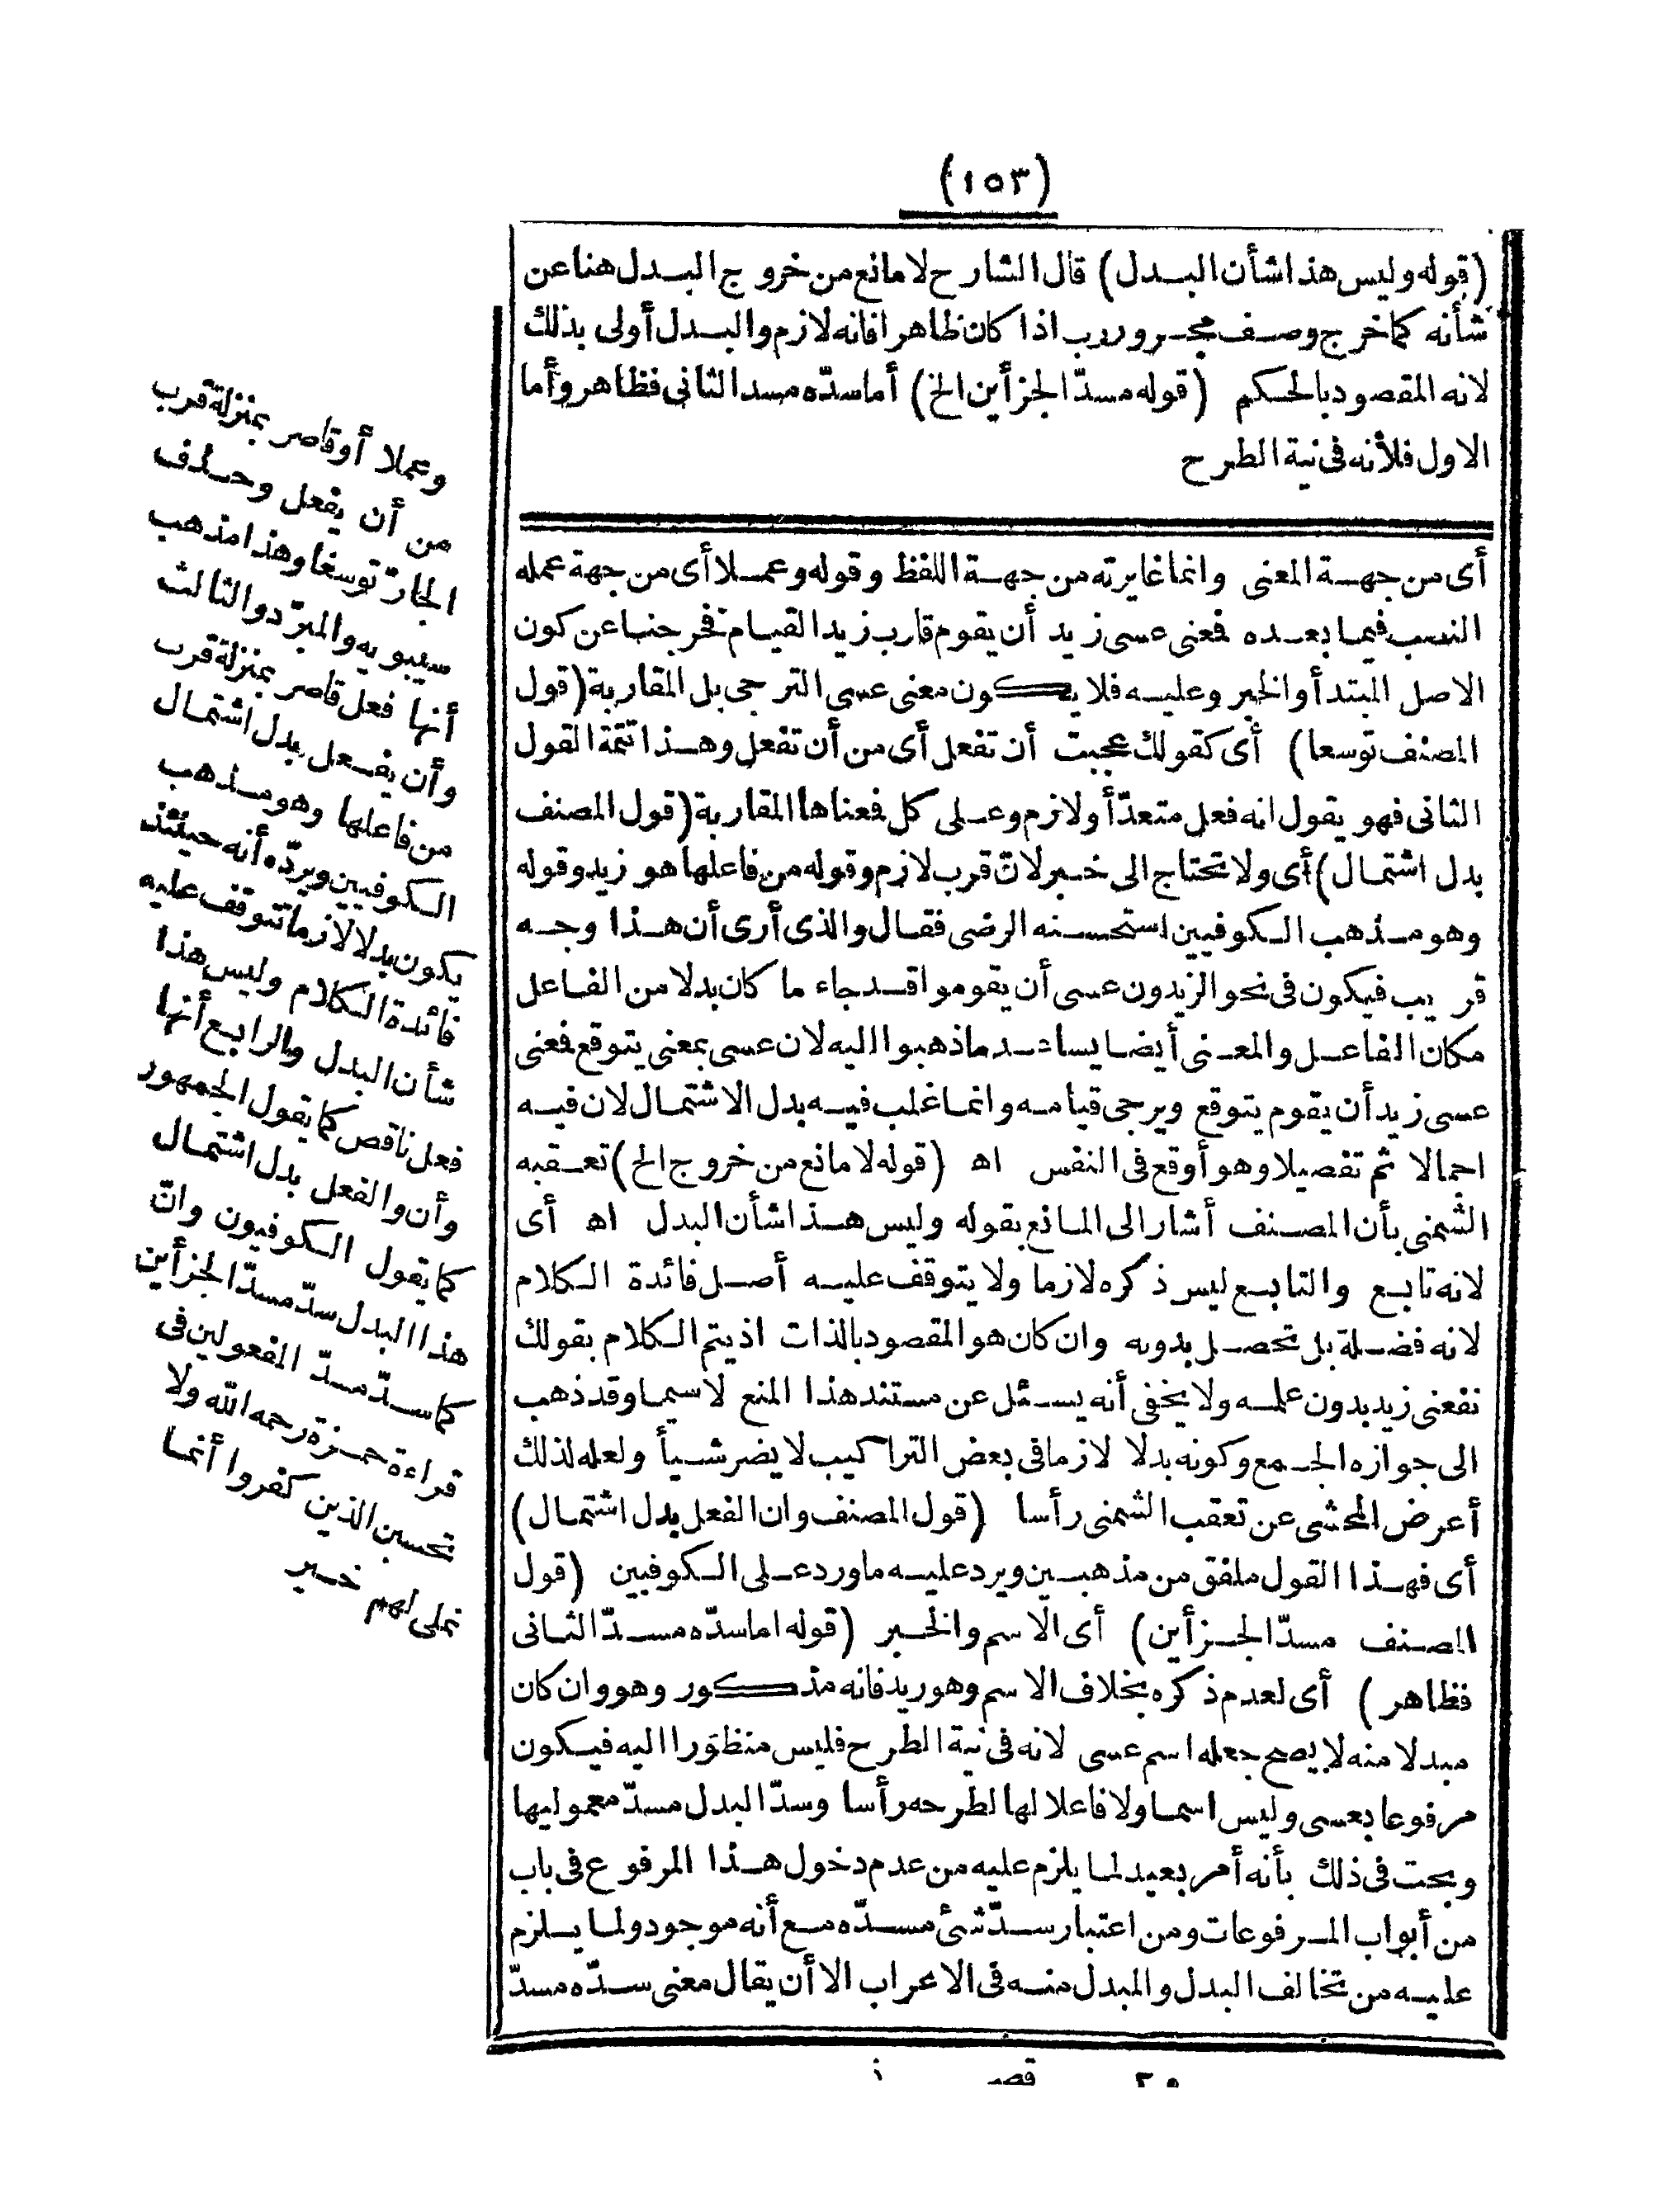 (١٥٣)
(قوله وليس هذا شأن البدل) قال الشارح لا مانع من خروج البدل هنا عن
شأنه كما خرج وصف مجرور رب اذا كان ظاهرا فانه لازم والبدل أولى بذلك
لانه المقصود بالحكم (قوله مسدّ الجزأين الخ) أما سدّه مسد الثانى فظاهر وأما
الاول فلأنه فى نية الطرح
أى من جهة المعنى وانما غايرته من جهة اللفظ وقوله وعملا أى من جهة عمله
النصب فيما بعده فمعنى عسى زيد أن يقوم قارب زيد القيام فخرجنا عن كون
الاصل المبتدأ والخبر وعليه فلا يكون معنى عسى الترجى بل المقاربة (قول
المصنف توسعا) أى كقولك عجبت أن تفعل أى من أن تفعل وهذا تتمة القول
الثانى فهو يقول انه فعل متعدّ أو لازم وعلى كل فمعناها المقاربة (قول المصنف
بدل اشتمال) أى ولا تحتاج الى خبر لانّ قرب لازم وقوله من فاعلها هو زيد وقوله
وهو مذهب الكوفيين استحسنه الرضى فقال والذى أرى أن هذا وجه
قريب فيكون فى نحو الزيدون عسى أن يقوموا قد جاء ما كان بدلا من الفاعل
مكان الفاعل والمعنى أيضا يساعد ما ذهبوا اليه لان عسى بمعنى يتوقع فمعنى
عسى زيد أن يقوم يتوقع ويرجى قيامه وانما غلب فيه بدل الاشتمال لان فيه
اجمالا ثم تفصيلا وهو أوقع فى النفس اه (قوله لا مانع من خروج الخ) تعقبه
الشمنى بأن المصنف أشار الى المانع بقوله وليس هذا شأن البدل اه أى
لانه تابع والتابع ليس ذكره لازما ولا يتوقف عليه أصل فائدة الكلام
لانه فضلة بل تحصل بدونه وان كان هو المقصود بالذات اذ يتم الكلام بقولك
نفعنى زيد بدون علمه ولا يخفى أنه يسئل عن مستند هذا المنع لا سيما وقد ذهب
الى جوازه الجمع وكونه بدلا لازما فى بعض التراكيب لا يضر شيأ ولعله لذلك
أعرض المحشى عن تعقب الشمنى رأسا (قول المصنف وان الفعل بدل اشتمال)
أى فهذا القول ملفق من مذهبين ويرد عليه ما ورد على الكوفيين (قول
المصنف مسدّ الجزأين) أى الاسم والخبر (قوله اما سدّه مسدّ الثانى
فظاهر) أى لعدم ذكره بخلاف الاسم وهو زيد فانه مذكور وهو وان كان
مبدلا منه لا يصح جعله اسم عسى لانه فى نية الطرح فليس منظورا اليه فيكون
مرفوعا بعسى وليس اسما ولا فاعلا لها لطرحه رأسا وسدّ البدل مسدّ معموليها
وبحث فى ذلك بأنه أمر بعيد لما يلزم عليه من عدم دخول هذا المرفوع فى باب
من أبواب المرفوعات ومن اعتبار سدّ شئ مسدّه مع أنه موجود ولما يلزم
عليه من تخالف البدل والمبدل منه فى الاعراب الا أن يقال معنى سدّه مسدّ
وعملا أو قاصر بمنزلة قرب
من أن يفعل وحذف
الجارّ توسعا وهذا مذهب
سيبويه والمبرّد والثالث
أنها فعل قاصر بمنزلة قرب
وأن يفعل بدل اشتمال
من فاعلها وهو مذهب
الكوفيين ويردّه أنه حينئذ
يكون بدلا لازما تتوقف عليه
فائدة الكلام وليس هذا
شأن البدل والرابع أنها
فعل ناقص كما يقول الجمهور
وأن والفعل بدل اشتمال
كما يقول الكوفيون وانّ
هذا البدل سدّ مسدّ الجزأين
كما سدّ مسدّ المفعولين فى
قراءة حمزة رحمه الله ولا
تحسبن الذين كفروا أنما
نملى لهم خير
٢٠ قصر